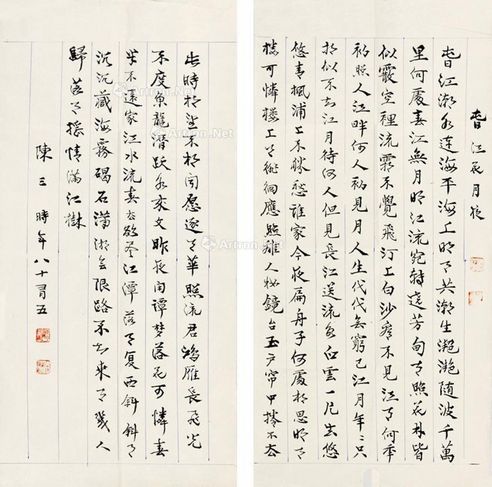 旾江花月夜
旾江潮水連海平海上明月共潮生灩灩隨波千萬
里何處春江無月明江流宛轉遶芳甸月照花林皆
似霰空裡流霜不覺飛汀上白沙看不見江月何年
初照人江畔何人初見月人生代代無窮已江月年年只
相似不知江月待何人但見長江送流水白雲一片去悠
悠青楓浦上不勝愁誰家今夜扁舟子何處相思明月
樓可憐樓上月徘徊應照離人妝鏡台玉戶帘中捲不去
此時相望不相聞愿逐月華照流君鴻雁長飛光
不度魚龍潛躍水成文昨夜閒潭夢落花可憐春
半不還家江水流春去欲盡江潭落月復西斜斜月
沉沉藏海霧碣石瀟湘無限路不知乘月幾人
歸落月搖情滿江樹
陳三時年八十有五
Artron.Net
Artron.Net